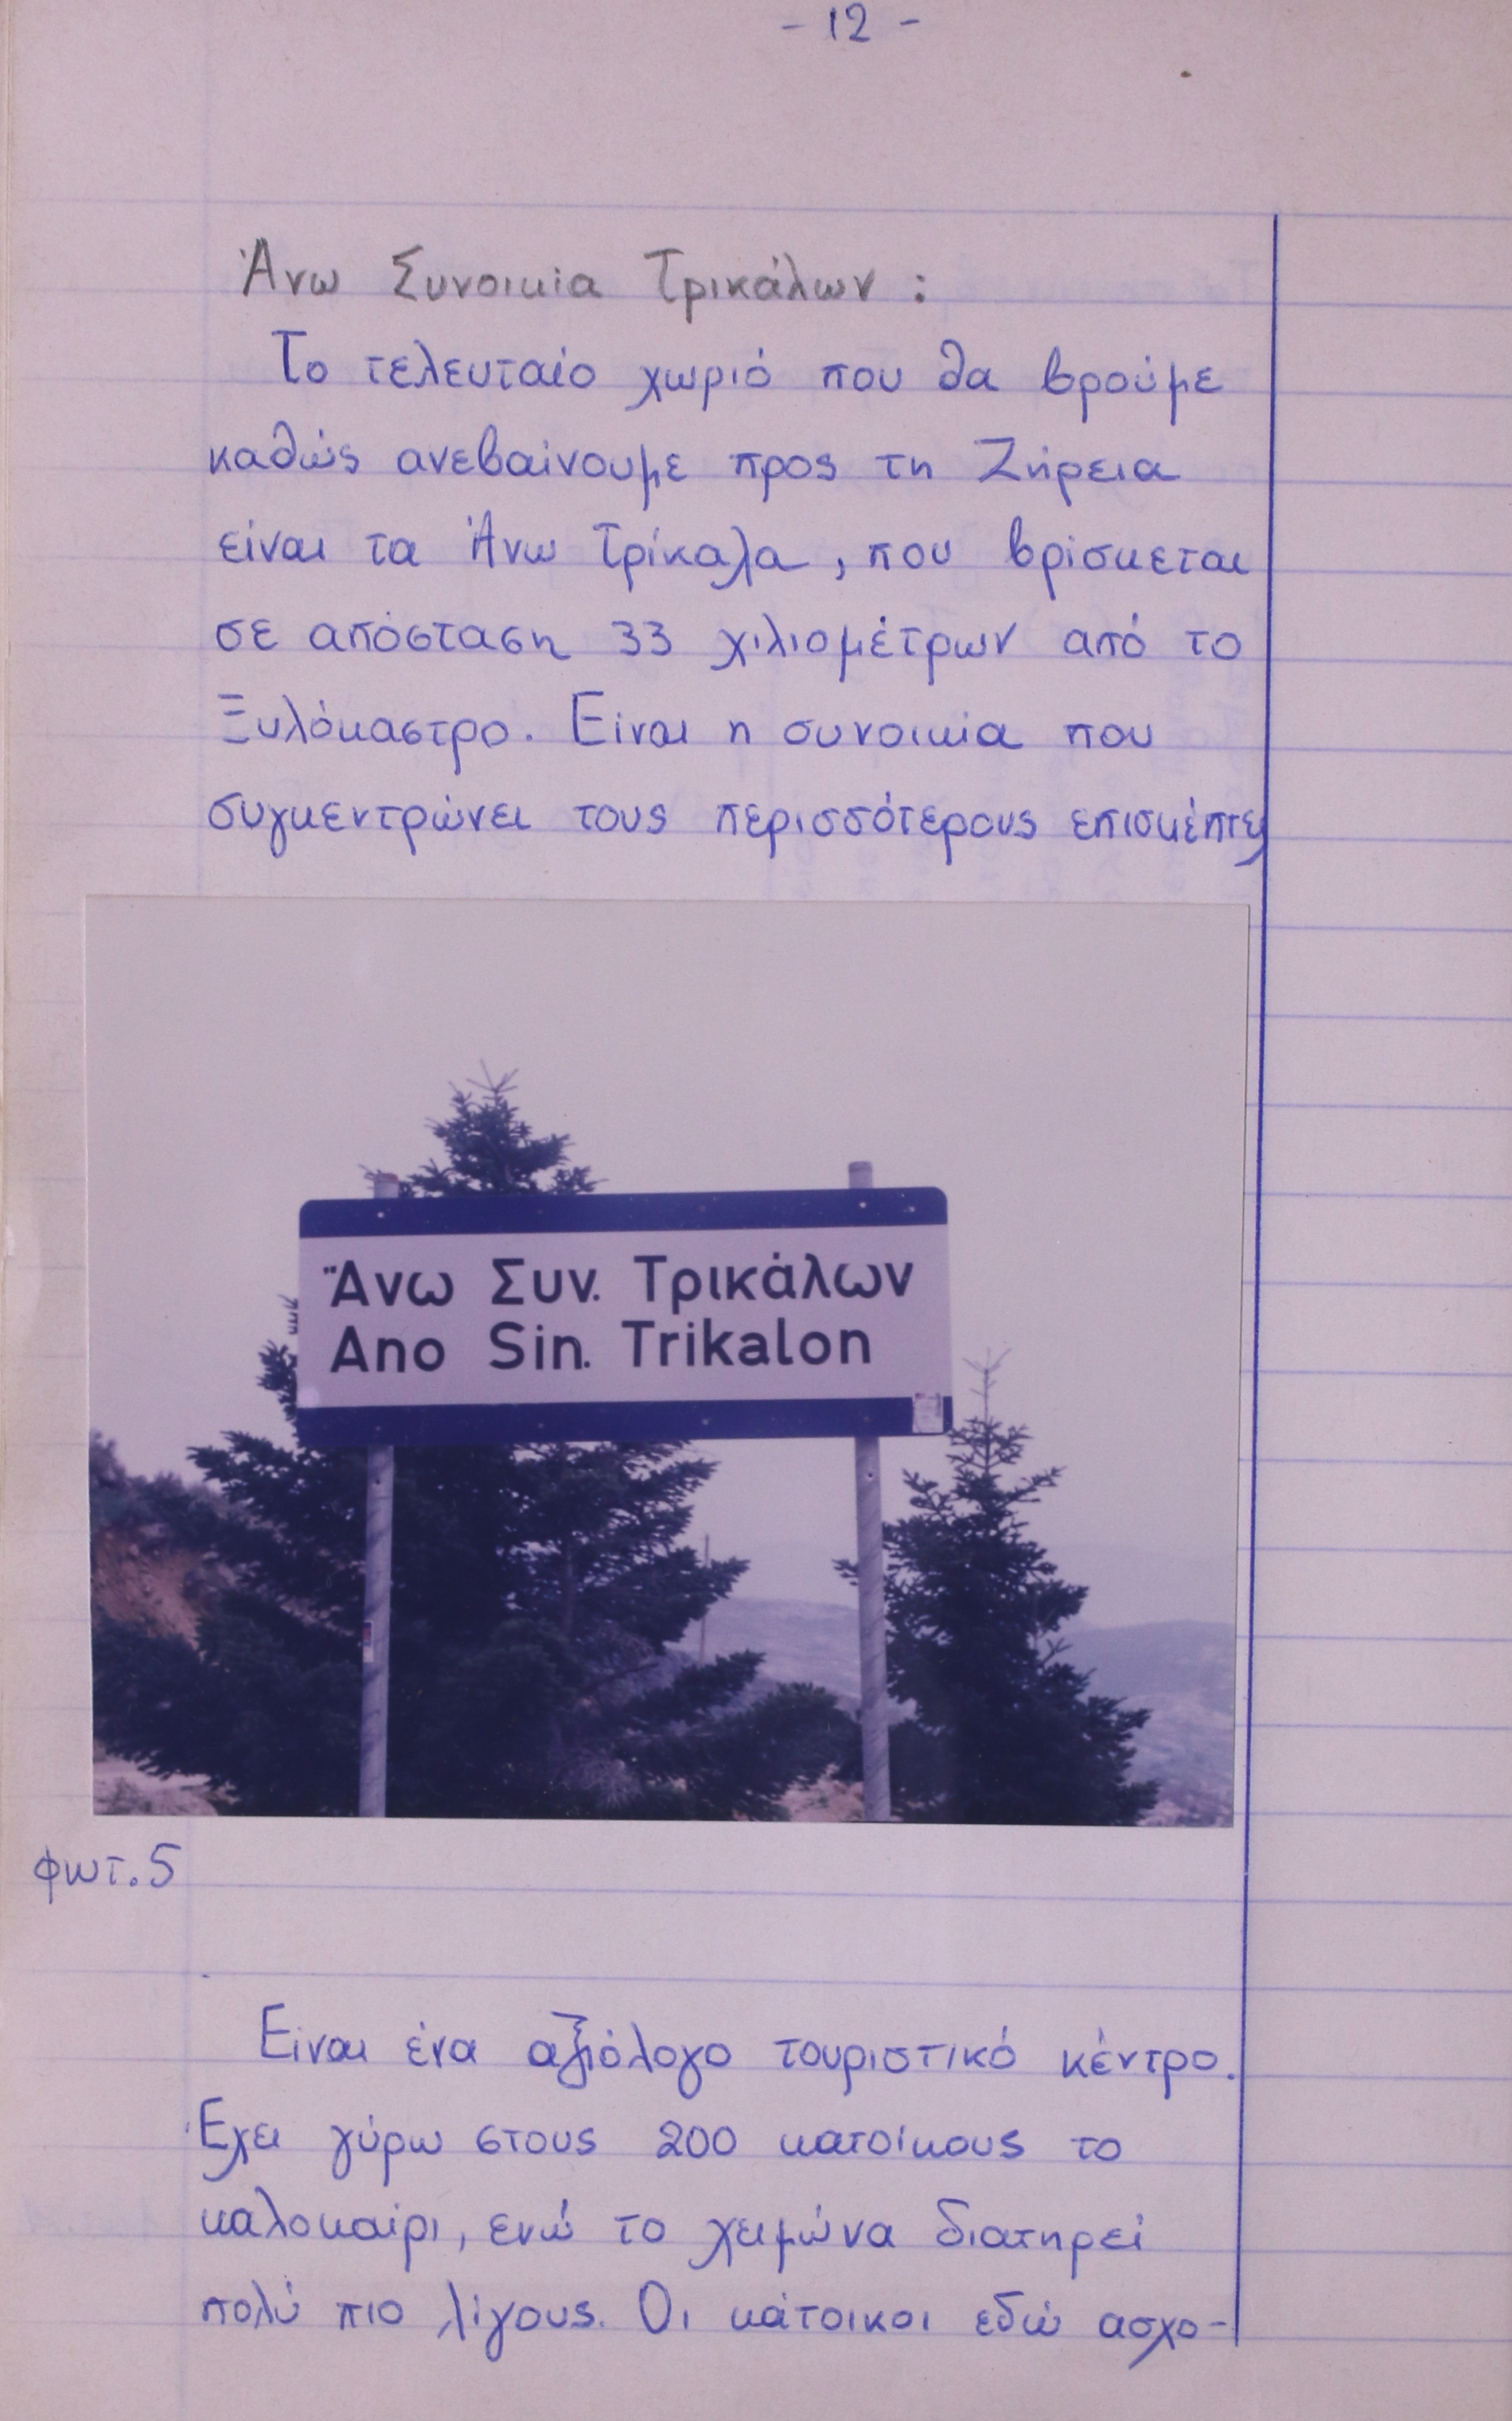 - 12 -
Άνω Συνοικία Τρικάλων :
Το τελευταίο χωριό που θα βρούμε
καθώς ανεβαίνουμε προς τη Ζήρεια
είναι τα Άνω Τρίκαλα, που βρίσκεται
σε απόσταση 33 χιλιομέτρων από το
Ξυλόκαστρο. Είναι η συνοικία που
συγκεντρώνει τους περισσότερους επισκέπτες
Ἄνω Συν. Τρικάλων
Ano Sin. Trikalon
φωτ.5
Είναι ένα αξιόλογο τουριστικό κέντρο.
Έχει γύρω στους 200 κατοίκους το
καλοκαίρι, ενώ το χειμώνα διατηρεί
πολύ πιο λίγους. Οι κάτοικοι εδώ ασχο-